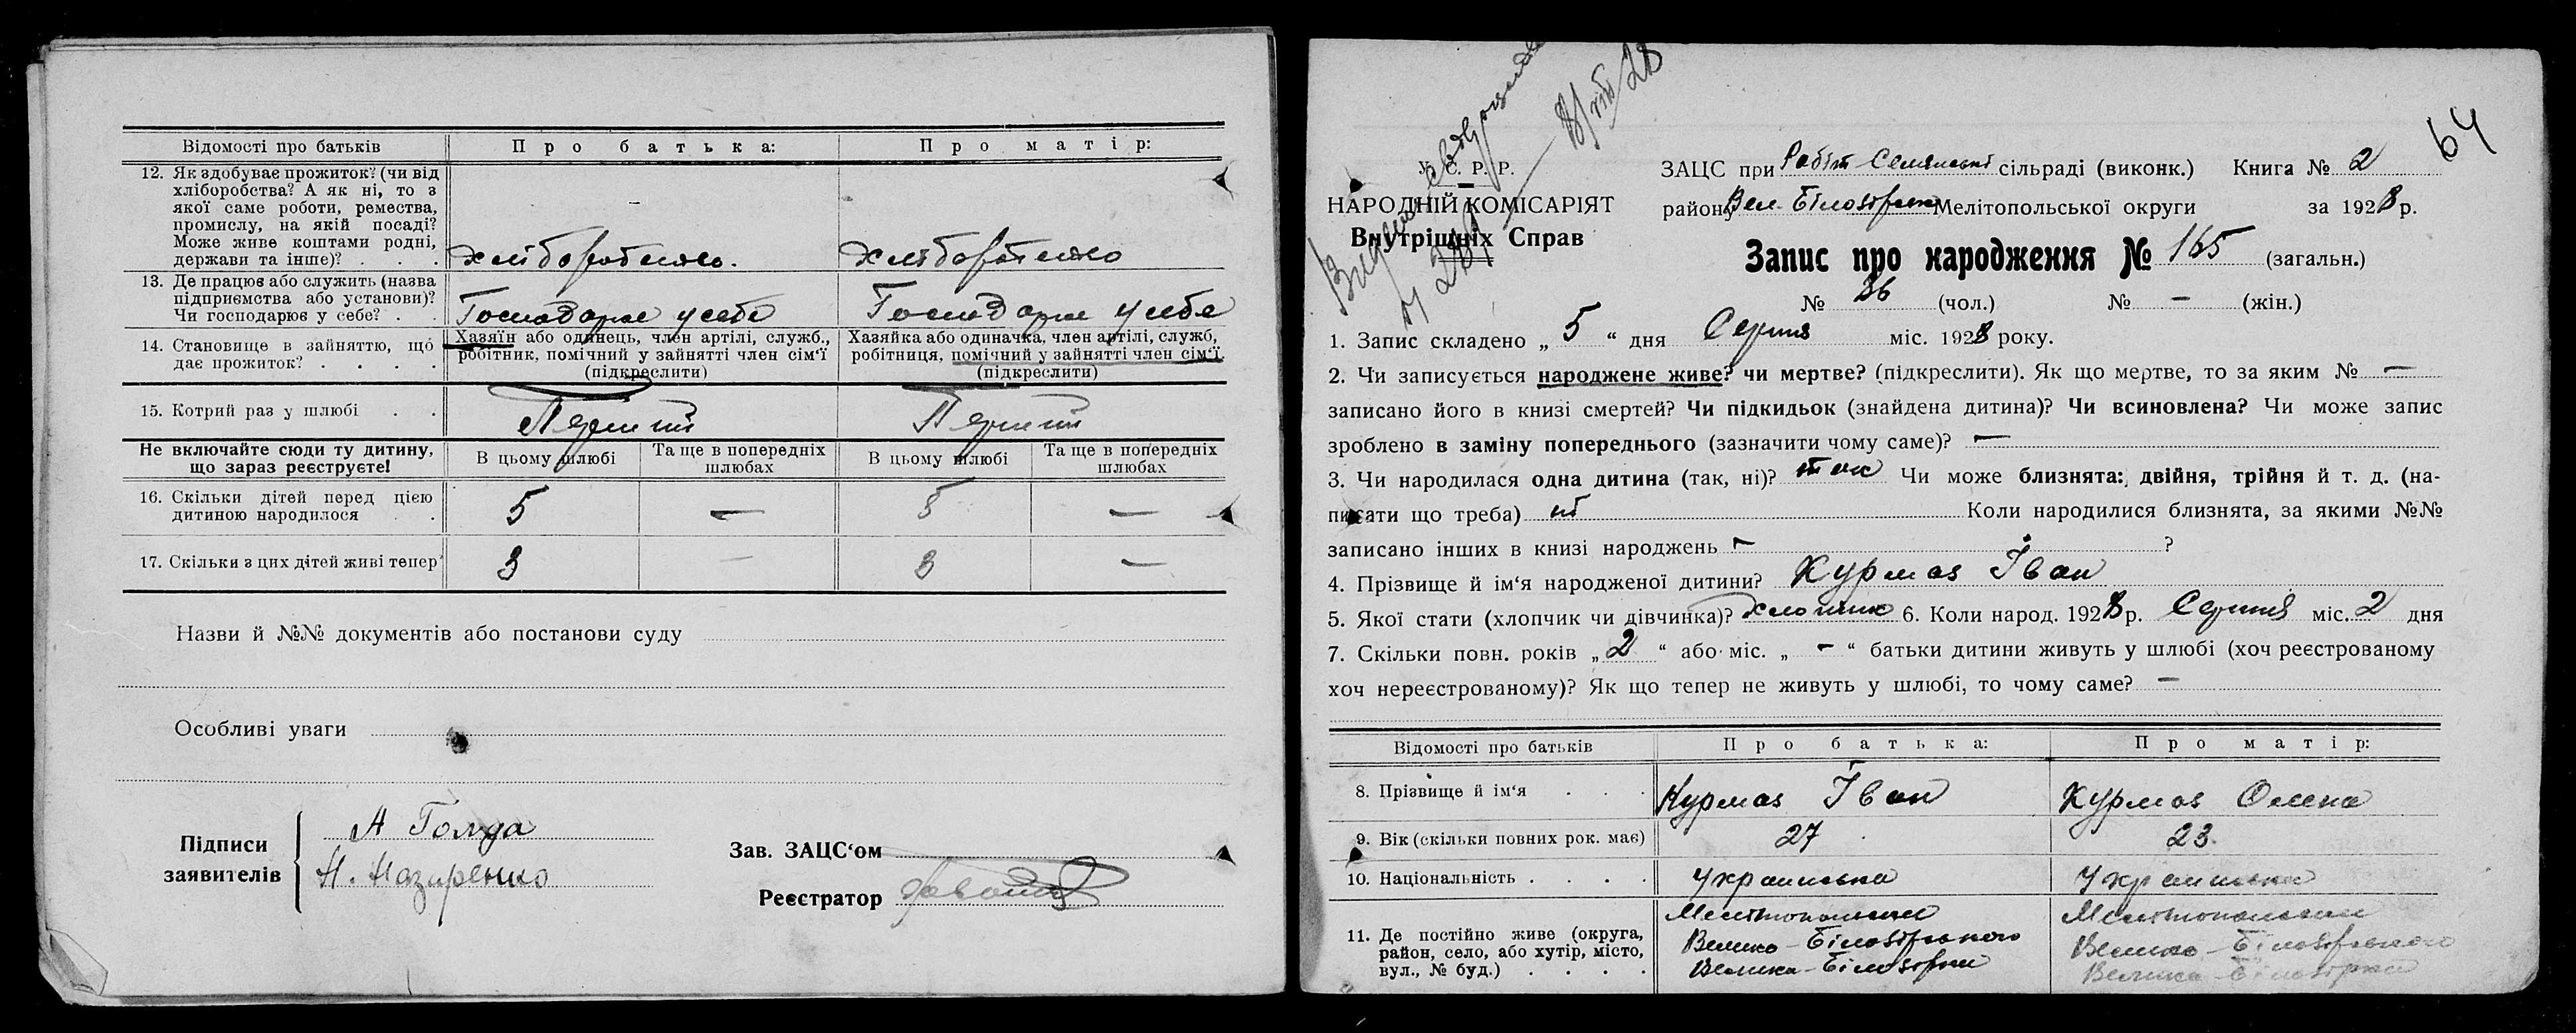 Відомості про батьків
Про батька:
Про матір:
12. Як здобуває прожиток? (чи від хліборобства? А як ні, то з якої саме роботи, ремества, промислу, на якій посаді? Може живе коштами родні, держави та інше)? . . .
хліборобство.
хліборобство
13. Де працює або служить (назва підприємства або установи)? Чи господарює у себе? . .
Господарює у себе
Господарює у себе
14. Становище в зайняттю, що дає прожиток? . . . .
Хазяїн або одинець, член артілі, служб., робітник, помічний у зайнятті член сім'ї (підкреслити)
Хазяйка або одиначка, член артілі, служб, робітниця, помічний у зайнятті член сім'ї. (підкреслити)
15. Котрий раз у шлюбі . .
Перший
Перший
Не включайте сюди ту дитину, що зараз реєструєте!
В цьому шлюбі
Та ще в попередніх шлюбах
В цьому шлюбі
Та ще в попередніх шлюбах
16. Скільки дітей перед цією дитиною народилося . .
5 — 5 —
17. Скільки з цих дітей живі тепер?
3 — 3 —
Назви й №№ документів або постанови суду
Особливі уваги
Підписи заявителів
А Голуда
Н. Назаренко
Зав. ЗАЦС'ом
Реєстратор
64
У. С. Р. Р.
НАРОДНІЙ КОМІСАРІЯТ
Внутрішніх Справ
ЗАЦС при сільраді (виконк.) Книга № 2
району Вел. Білозірськ Мелітопольської округи за 1928 р.
Запис про народження № 165 (загальн.)
№ 86 (чол.) № — (жін.)
1. Запис складено „ 5 “ дня Серпня міс. 1928 року.
2. Чи записується народжене живе? чи мертве? (підкреслити). Як що мертве, то за яким № —
записано його в книзі смертей? Чи підкидьок (знайдена дитина)? Чи всиновлена? Чи може запис
зроблено в заміну попереднього (зазначити чому саме)? —
3. Чи народилася одна дитина (так, ні)? так Чи може близнята: двійня, трійня й т. д. (на-
писати що треба) ні Коли народилися близнята, за якими №№
записано інших в книзі народжень — ?
4. Прізвище й ім'я народженої дитини? Курмаз Іван
5. Якої стати (хлопчик чи дівчинка)? хлопчик 6. Коли народ. 1928 р. Серпня міс. 2 дня
7. Скільки повн. років „ 2 “ або міс. „ — “ батьки дитини живуть у шлюбі (хоч реєстрованому
хоч нереєстрованому)? Як що тепер не живуть у шлюбі, то чому саме? —
Відомості про батьків
Про батька:
Про матір:
8. Прізвище й ім'я . . .
Курмаз Іван
Курмаз Олена
9. Вік (скільки повних рок. має)
27
23.
10. Національність . . . .
Українська
Українська
11. Де постійно живе (округа, район, село, або хутір, місто, вул., № буд.) . . . .
Мелітопольськ
Велико-Білозірського
Велика-Білозірка
Мелітопольськ
Велико-Білозірського
Велика-Білозірка